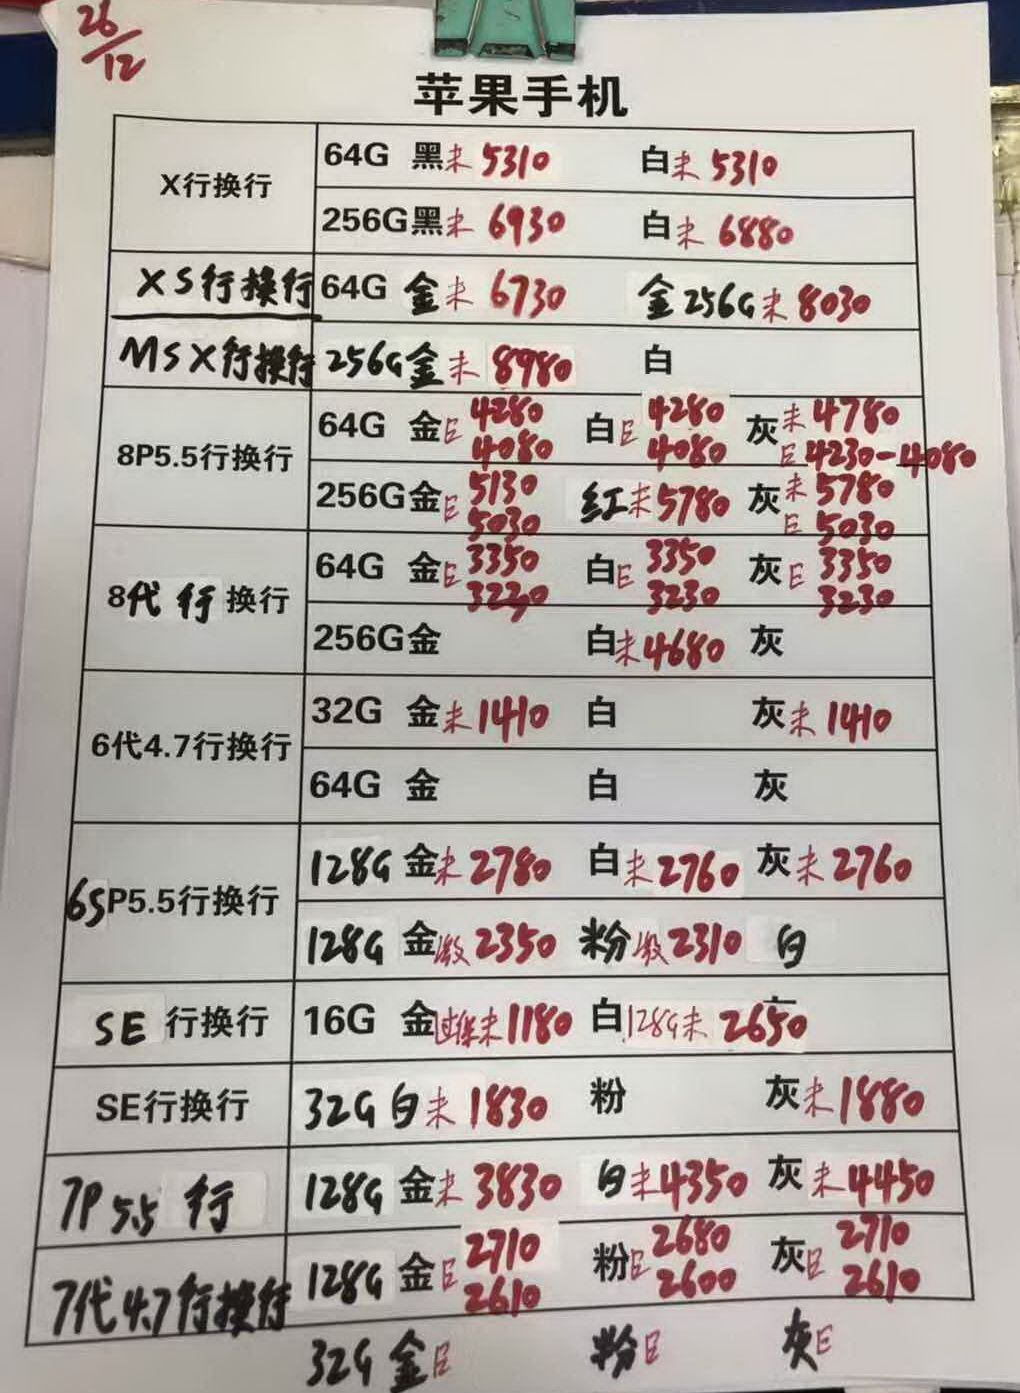 26/12
苹果手机
X行换行 64G 黑未5310 白未5310
256G黑未6930 白未6880
XS行换行 64G 金未6730 金256G未8030
MSX行换行 256G金未8980 白
8P5.5行换行 64G 金E4280 4080 白E4280 4080 灰未4780 E4230-4080
256G金E5130 5030 红未5780 灰未5780 E5030
8代行换行 64G 金E3350 3230 白E3350 3230 灰E3350 3230
256G金 白未4680 灰
6代4.7行换行 32G 金未1410 白 灰未1410
64G 金 白 灰
6SP5.5行换行 128G 金未2780 白未2760 灰未2760
128G 金激2350 粉激2310 白
SE行换行 16G 金过保未1180 白128G未2650
SE行换行 32G白未1830 粉 灰未1880
7P5.5行 128G 金未3830 白未4350 灰未4450
7代4.7行换行 128G 金E2710 2610 粉E2680 2600 灰E2710 2610
32G 金E 粉E 灰E